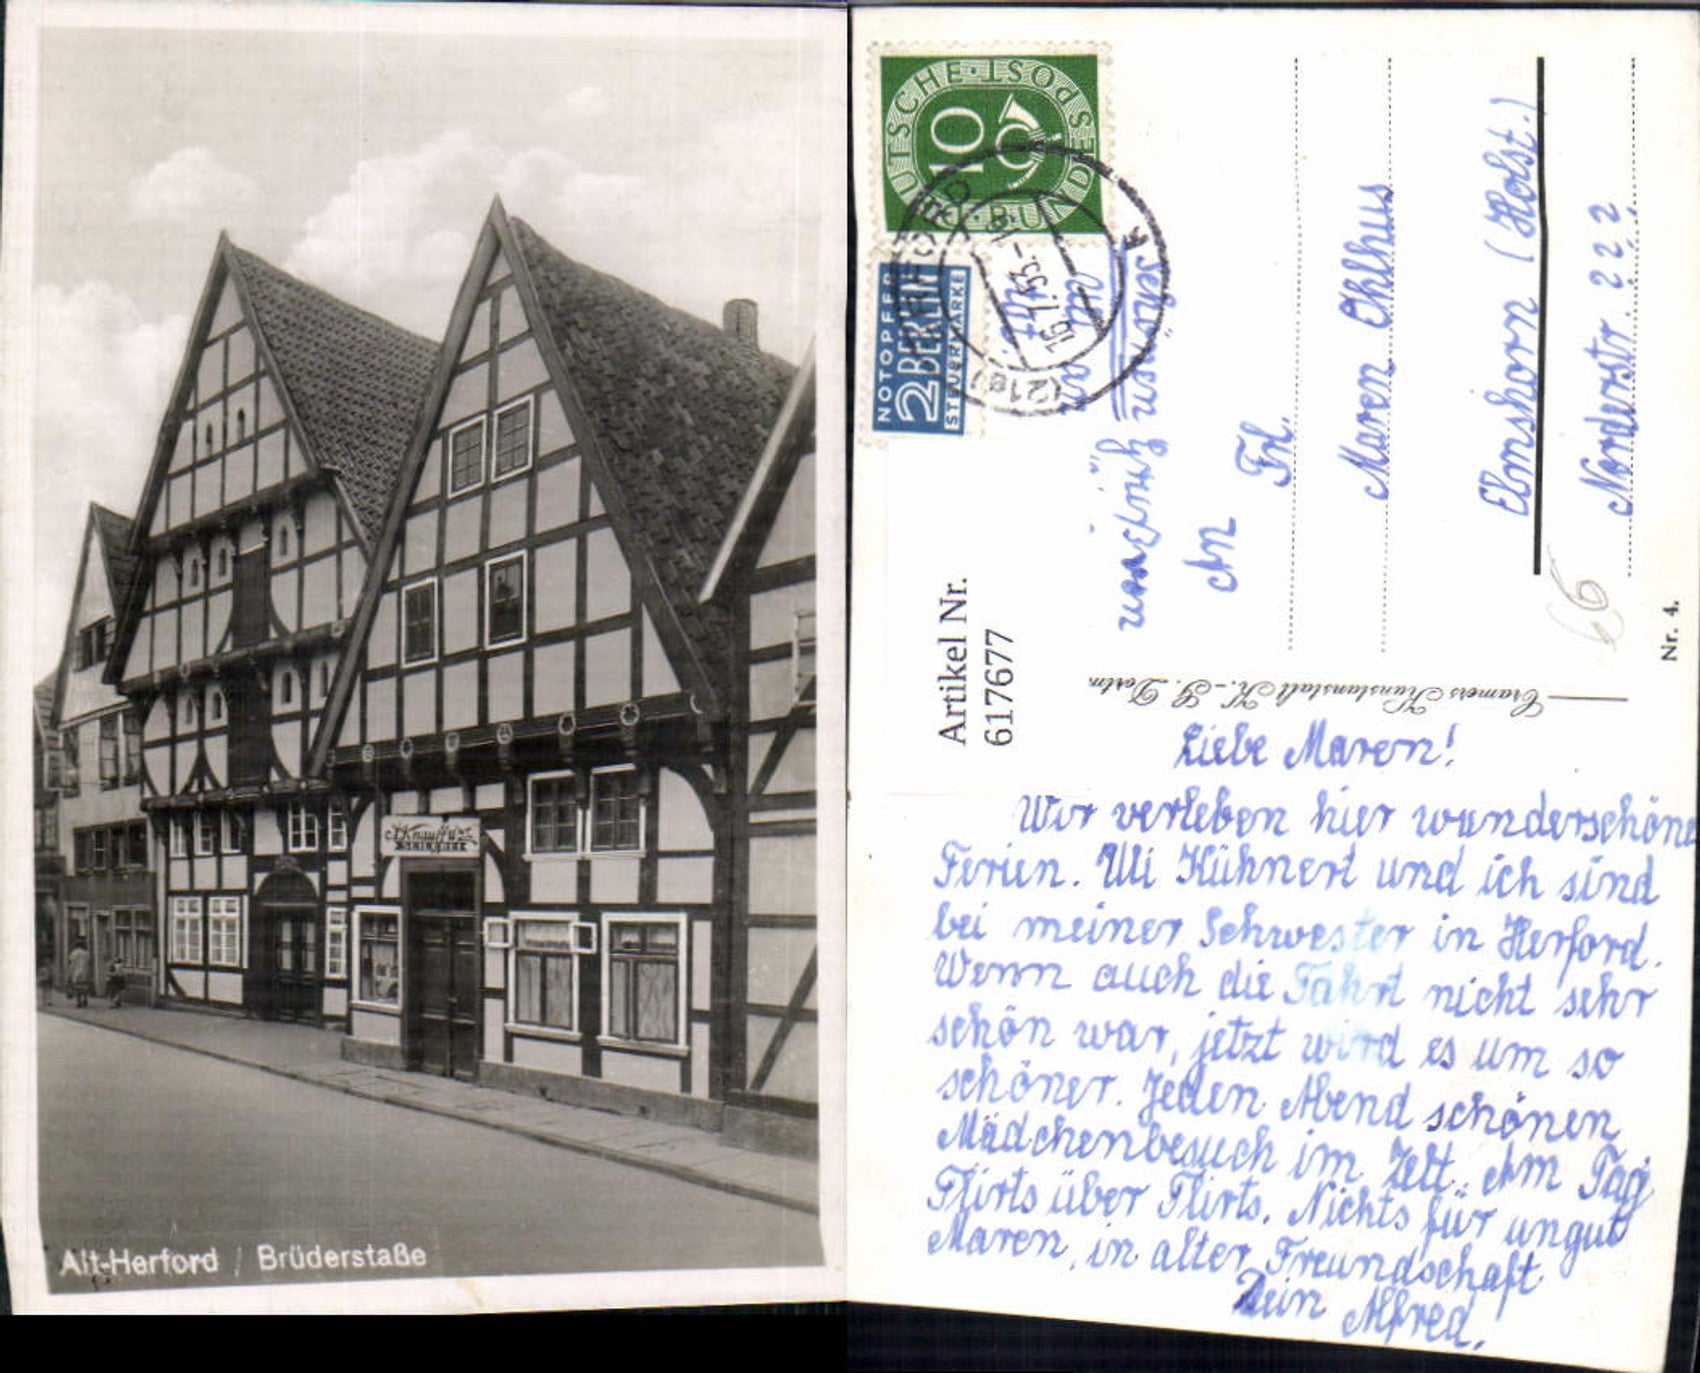 Alt-Herford / Brüderstaße
DEUTSCHE·BUNDESPOST
10
NOTOPFER
2 BERLIN
STEUERMARKE
HERFORD
16.7.53.-18
(21a)
k
Artikel Nr.
617677
An
Frl.
Maren Ohlhus
Elmshorn (Holst.)
Norderstr. 222
66
Nr. 4.
Cramers Kunstanstalt K.-G. Dortm
Liebe Maren!
Wir verleben hier wunderschöne
Ferien. Uli Kühnert und ich sind
bei meiner Schwester in Herford.
Wenn auch die Fahrt nicht sehr
schön war, jetzt wird es um so
schöner. Jeden Abend schönen
Mädchenbesuch im Zelt. Am Tag
Flirts über Flirts. Nichts für ungut
Maren, in alter Freundschaft
Dein Alfred.